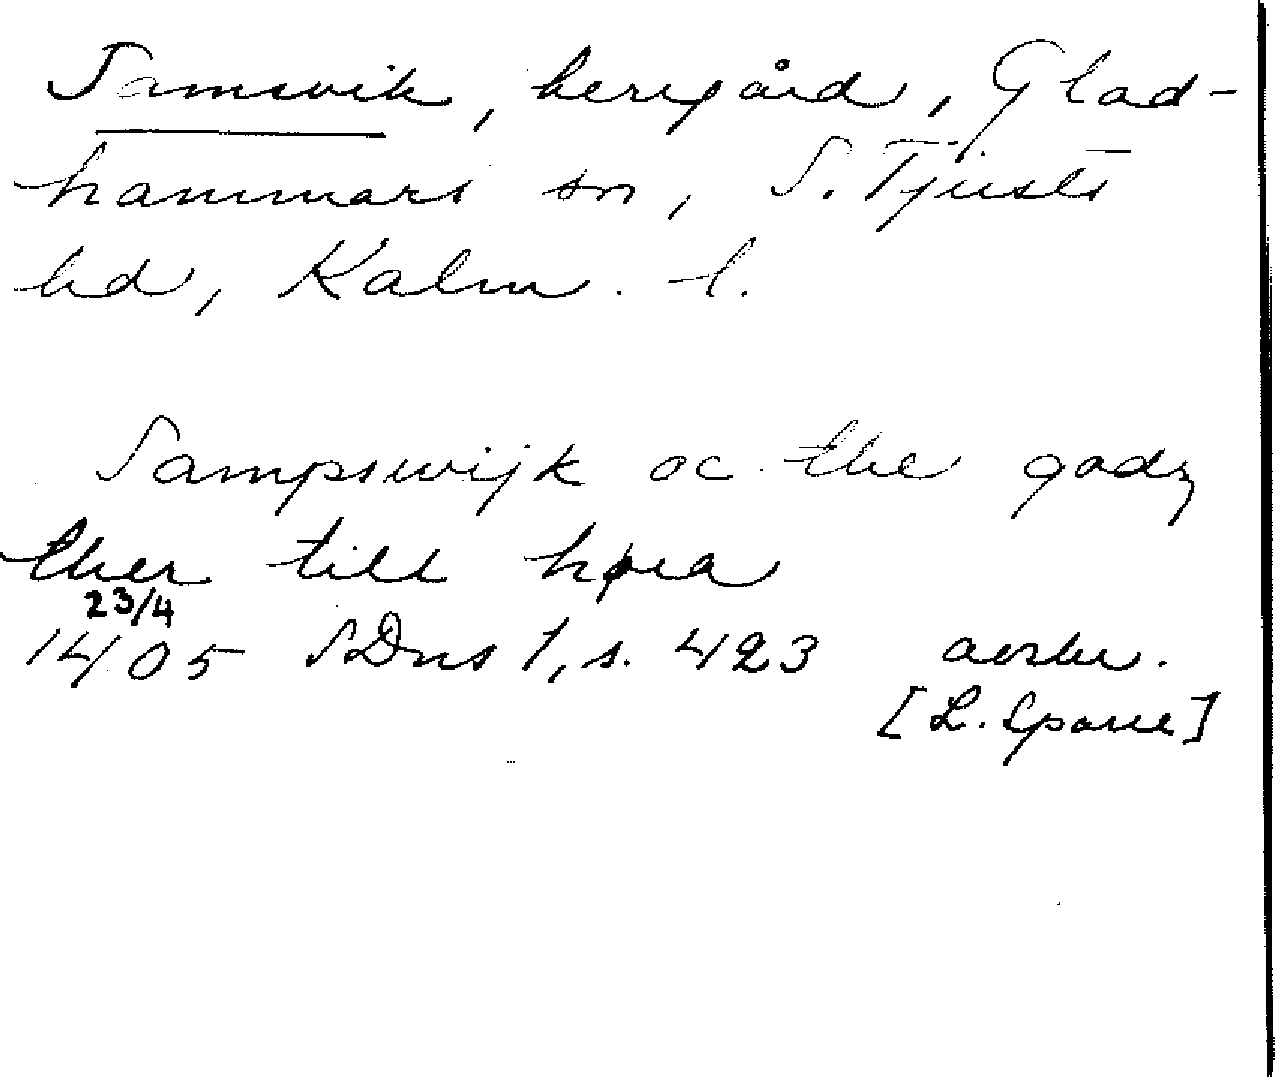 Samsvik, herrgård, Glad-
hammars sn, S. Tjusts
hd, Kalm. l.
Sampswijk oc the godz
ther till høra
23/4
1405 SDns 1, s. 423 avskr.
[L. Sparre]